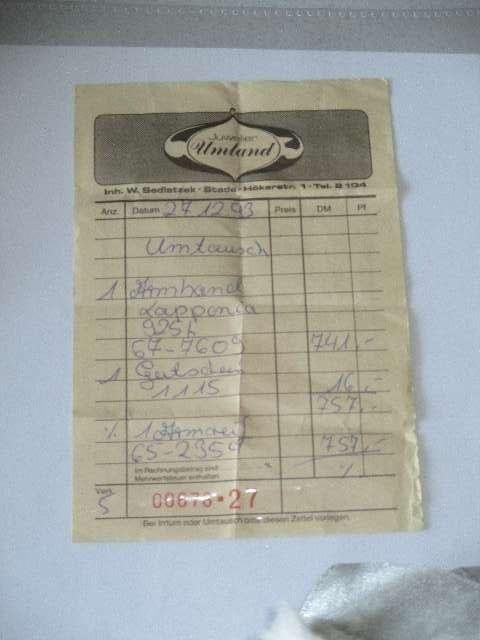 Juwelier
Umland
Inh. W. Sedlatzek · Stade · Hökerstr. 1 · Tel. 2 194
Anz. Datum 27.12.93 Preis DM Pf
Umtausch
1 Armband
Lapponia
925h
67-7609 741,-
1 Gutschein 16,-
1115 757,-
% 1 Armreif
65-2359 757,-
Im Rechnungsbetrag sind %
Mehrwertsteuer enthalten
Verk.
5 00678 · 27
Bei Irrtum oder Umtausch bitte diesen Zettel vorlegen.